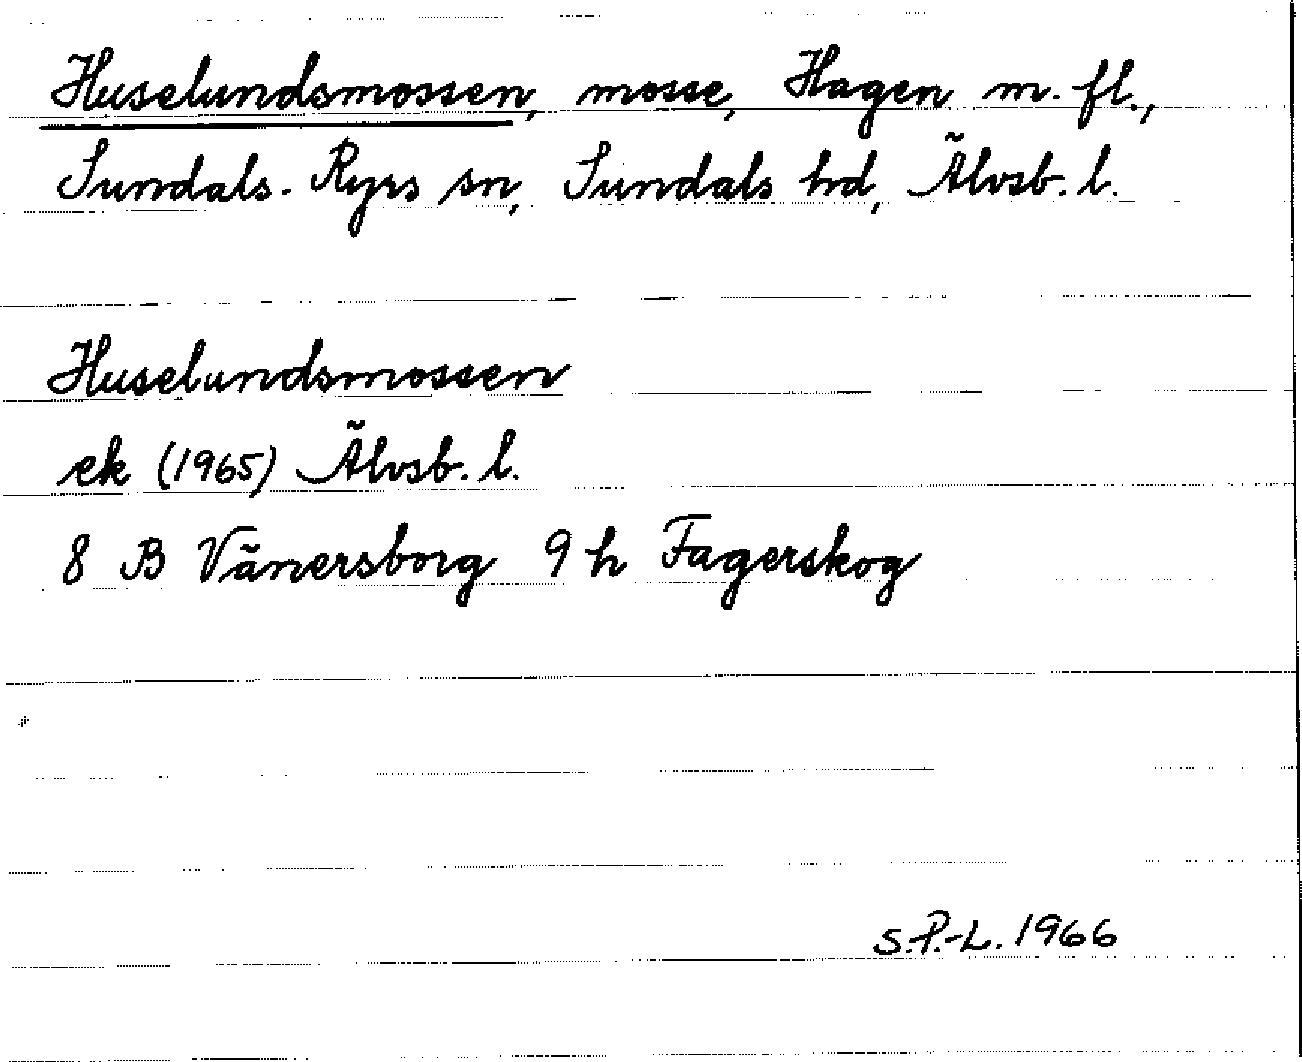 Huselundsmossen, mosse, Hagen m. fl.,
Sundals-Ryrs sn, Sundals hd, Älvsb. l.
Huselundsmossen
ek (1965) Älvsb. l.
8 B Vänersborg 9 h Fagerskog
S.P.-L. 1966